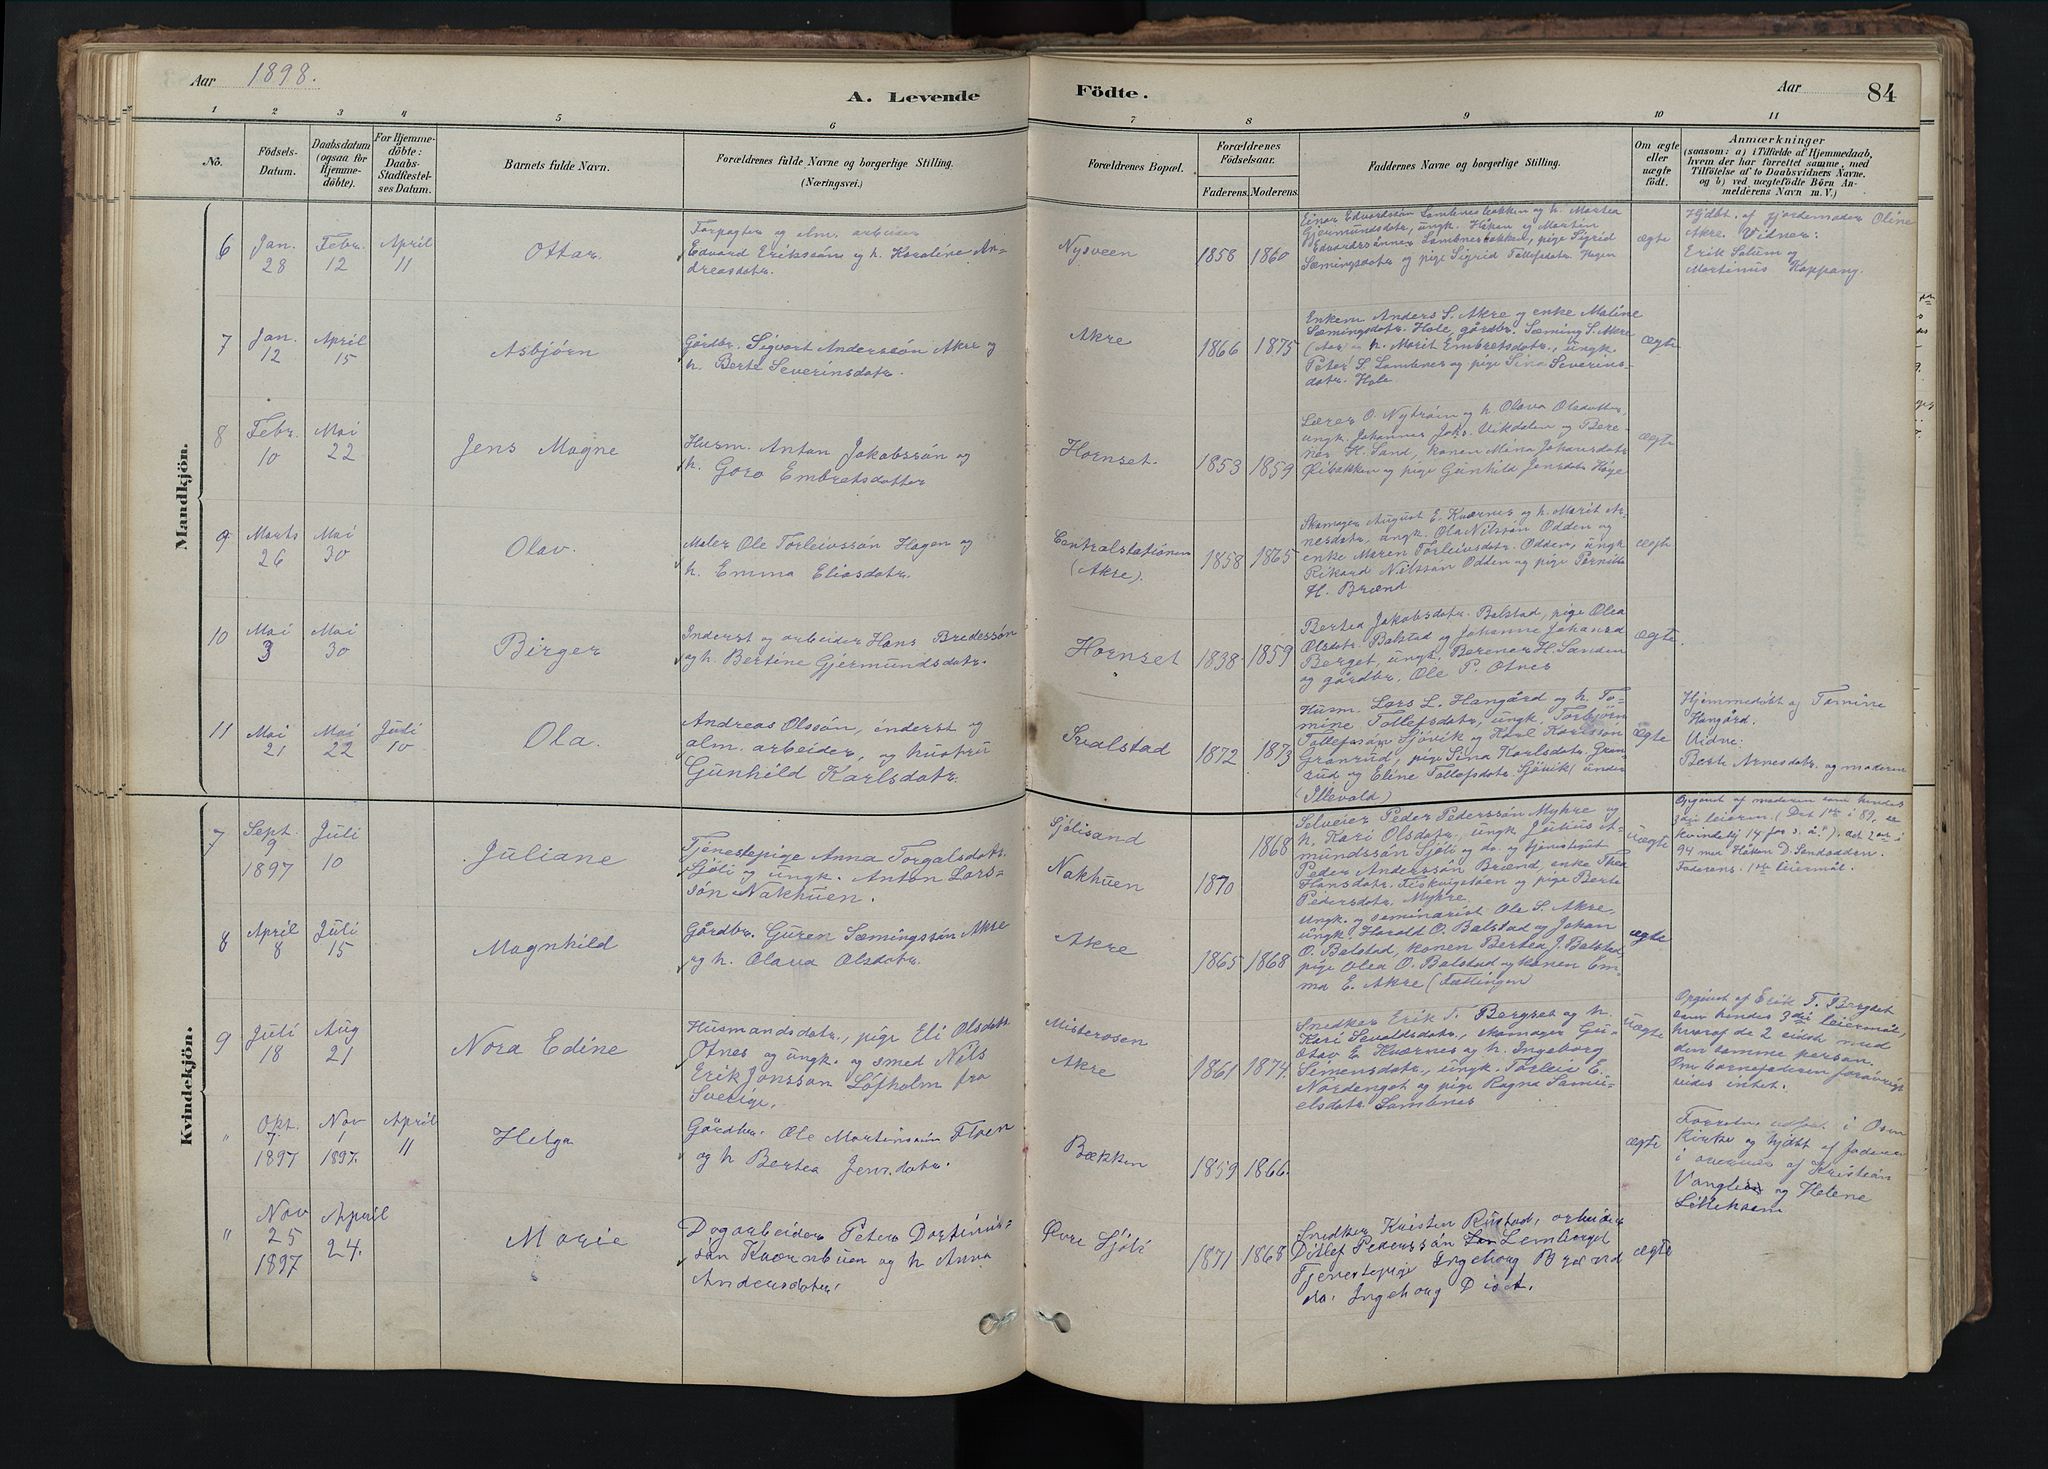 Aar 1898.
A. Levende Födte.
Aar 84
1 2 3 4 5 6 7 8 9 10 11
No.
Födsels-Datum.
Daabsdatum (ogsaa for Hjemmedöbte).
For Hjemmedöbte: Daabs-Stadfæstelses Datum.
Barnets fulde Navn.
Forældrenes fulde Navne og borgerlige Stilling.
(Næringsvei.)
Forældrenes Bopæl.
Forældrenes Födselsaar.
Faderens. Moderens.
Faddernes Navne og borgerlige Stilling.
Om ægte eller uægte födt.
Anmærkninger
(saasom: a) i Tilfælde af Hjemmedaab,
hvem der har forrettet samme, med
Tilföielse af to Daabsvidners Navne.
og b) ved uægtefödte Börn An-
melderens Navn m. V.)
Mandkjön.
6 Jan. 28 Febr. 12 April 11
Ottar.
Forpagter og alm. arbeider
Edvard Erikssön og h. Karoline An-
dreasdatr.
Nysveen
1858 1860
Einar Edvardssön Lombnesbakken og h. Martea
Gjermundsdatr., ungk. Håken og Martin
Edvardssönner Lombnesbakken, pige Sigrid
Sæmingsdatr og pige Sigrid Tollefsdatr. Hagen
ægte
Hjdbt. af gjordemoder Oline
Akre. Vidner:
Erik Solum og
Martinus Koppang.
7 Jan. 12 April 15
Asbjörn
Gårdbr. Sigvart Anderssön Akre og
h. Berte Severinsdatr.
Akre
1866 1875
Enkem. Anders S. Akre og enke Maline
Sæmingsdatr. Hole, gårdbr. Sæming S. Akre
og h. Marit Embretsdatr., ungk.
Peter S. Lombnes og pige Sina Severins-
datr. Hole
ægte
8 Febr. 10 Mai 22
Jens Magne
Husm. Anton Jakobssön og
h. Goro Embretsdatter
Hornset.
1853 1859
Lærer O. Nytröin og h. Olava Olsdatter,
ungk. Johannes Johs. Vikdalen og Bere-
nes H. Sand, konen Mina Johansdatr
Öibakken og pige Gunhild Jensdatr Höye
ægte
9 Marts 26 Mai 30
Olav.
Maler Ole Torleivssön Hagen og
h. Emma Eliasdatr.
Centralstationen
(Akre).
1858 1865
Skomager August E. Kværnes og h. Marit Ar-
nesdatr, ungk. Ola Nilssön Odden og
enke Maren Torleivsdatr. Odden, ungk
Rikard Nilssön Odden og pige Pernille
H. Brænd
ægte
10 Mai 3 Mai 30
Birger
Inderst og arbeider Hans Bredessön
og h. Bertine Gjermundsdatr.
Hornset
1838 1859
Bertea Jakobsdatr. Balstad, pige Olea
Olsdatr. Balstad og Johanne Johansd
Berget, ungk. Berener H. Sanden
og gårdbr. Ole P. Otnes
ægte.
11 Mai 21 Mai 22 Juli 10
Ola.
Andreas Olssön, inderst og
alm. arbeider, og hustru
Gunhild Karlsdatr.
Svalstad
1872 1873
Husm. Lars L. Hangård og h. To-
mine Tollefsdatr, ungk. Torbjörn
Tollefssön Sjövik og Karl Karlssön
Granrud, pige Sina Karlsdatr. Gran
rud og Eline Tollefsdatr. Sjövik (under
Illevold)
ægte
Hjemmedöbt af Tomine
Hangård.
Vidne:
Berte Arnesdatr. og moderen
Kvindekjön.
7 Sept. 9 1897 Juli 10
Juliane
Tjenestepige Anna Torgalsdatr.
Sjöli og ungk. Anton Lars-
sön Nakhuen.
Sjölisand
Nakhuen
1870 1868
Selveier Peder Pederssön Myhre og
h. Kari Olsdatr., ungk Julius A-
mundssön Sjöli og do. og tjenestegut
Peder Anderssön Brænd, enke Thea
Hansdatr. Fiskvigstöen og pige Berte
Pedersdatr. Myhre.
uægte
Opgivet af moderen som hendes
3die leierm. (Det 1ste i 89, er
kvindelij 14 for s. å.), det 2det i
94 med Håken D. Sandodden.
Faderens 1ste leiermål.
8 April 8 Juli 15
Magnhild
Gårdbr. Guren Sæmingssön Akre
og h. Olava Olsdatr.
Akre
1865 1868
Ungk. og seminarist Ole S. Akre,
ungk. Harald O. Balstad og Johan
O. Balstad, konen Bertea J. Balstad,
pige Olea O. Balstad og konen Em-
ma E. Akre (Fættingen
ægte
9 Juli 18 Aug 21
Nora Edine
Husmandsdatr., pige Eli Olsdatr.
Otnes og ungk. og smed Nils
Erik Jonsson Löfholm fra
Sverige.
Misterosen
Akre
1861 1874.
Snedker Erik T. Bergset og h.
Kari Sevaldsdatr., skomager Gu-
stav E. Kværnes og h. Ingeborg
Simensdatr., ungk. Torleiv E.
Nordenget og pige Ragna Samu-
elsdatr. Lombnes
uægte
Opgivet af Erik T. Bergset
som hendes 3die leiermål,
hvoraf de 2 sidste med
den samme person.
Om barnefaderen forövrigt
vides intet.
" Okt. 7 1897 Nov 1 1897. April 11
Helga
Gårdbr. Ole Martinssön Floen
og h Bertea Jensdatr.
Bækken
1859 1866
ægte
i Osen
Kirke og hjdbt af faderen
i nærvær af Kristian
Vangli og Helene
Lilleksem
" Nov 25 1897 April 24.
Marie
Dagarbeider Peter Dortinus-
sön Kværnbuen og h Anna
Andersdatter.
Övre Sjöli
1871 1868
Snedker Kristen Rustad, arbeider
Ditlef Pederssön Lemberget
Tjenestepige Ingeborg Brænd
do. Ingeborg Diset.
ægte